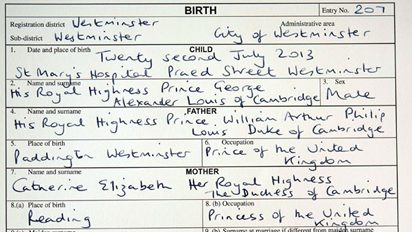 BIRTH
Entry No. 207
Registration district Westminster
Administrative area
Sub-district Westminster
City of Westminster
1. Date and place of birth CHILD
Twenty second July 2013
St Mary's Hospital Praed Street Westminster
2. Name and surname
3. Sex
His Royal Highness Prince George
Alexander Louis of Cambridge
Male
4. Name and surname FATHER
His Royal Highness Prince William Arthur Philip
Louis Duke of Cambridge
5. Place of birth
6. Occupation
Paddington Westminster
Prince of the United
Kingdom
7. Name and surname MOTHER
Catherine Elizabeth Her Royal Highness
The Duchess of Cambridge
8.(a) Place of birth
8. (b) Occupation
Reading
Princess of the United
Kingdom